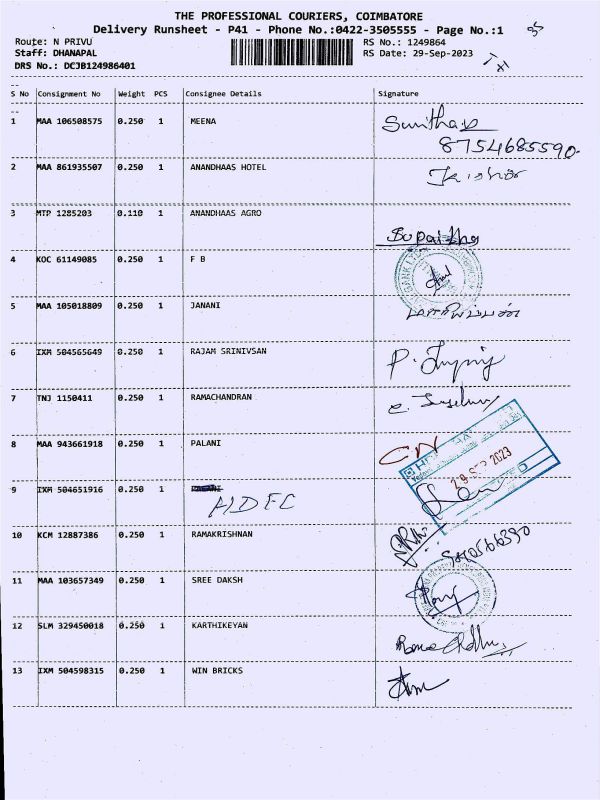 THE PROFESSIONAL COURIERS, COIMBATORE
Delivery Runsheet - P41 - Phone No.:0422-3505555 - Page No.:1
Route: N PRIVU RS No.: 1249864
Staff: DHANAPAL RS Date: 29-Sep-2023
DRS No.: DCJB124986401
S No Consignment No Weight PCS Consignee Details Signature
1 MAA 106508575 0.250 1 MEENA
8754685590
2 MAA 861935507 0.250 1 ANANDHAAS HOTEL
3 MTP 1285203 0.110 1 ANANDHAAS AGRO
4 KOC 61149085 0.250 1 F B
5 MAA 105018809 0.250 1 JANANI
6 IXM 504565649 0.250 1 RAJAM SRINIVSAN
7 TNJ 1150411 0.250 1 RAMACHANDRAN
8 MAA 943661918 0.250 1 PALANI CN
29 SEP 2023
9 IXM 504651916 0.250 1
HDFC
10 KCM 12887386 0.250 1 RAMAKRISHNAN
11 MAA 103657349 0.250 1 SREE DAKSH
12 SLM 329450018 0.250 1 KARTHIKEYAN
13 IXM 504598315 0.250 1 WIN BRICKS